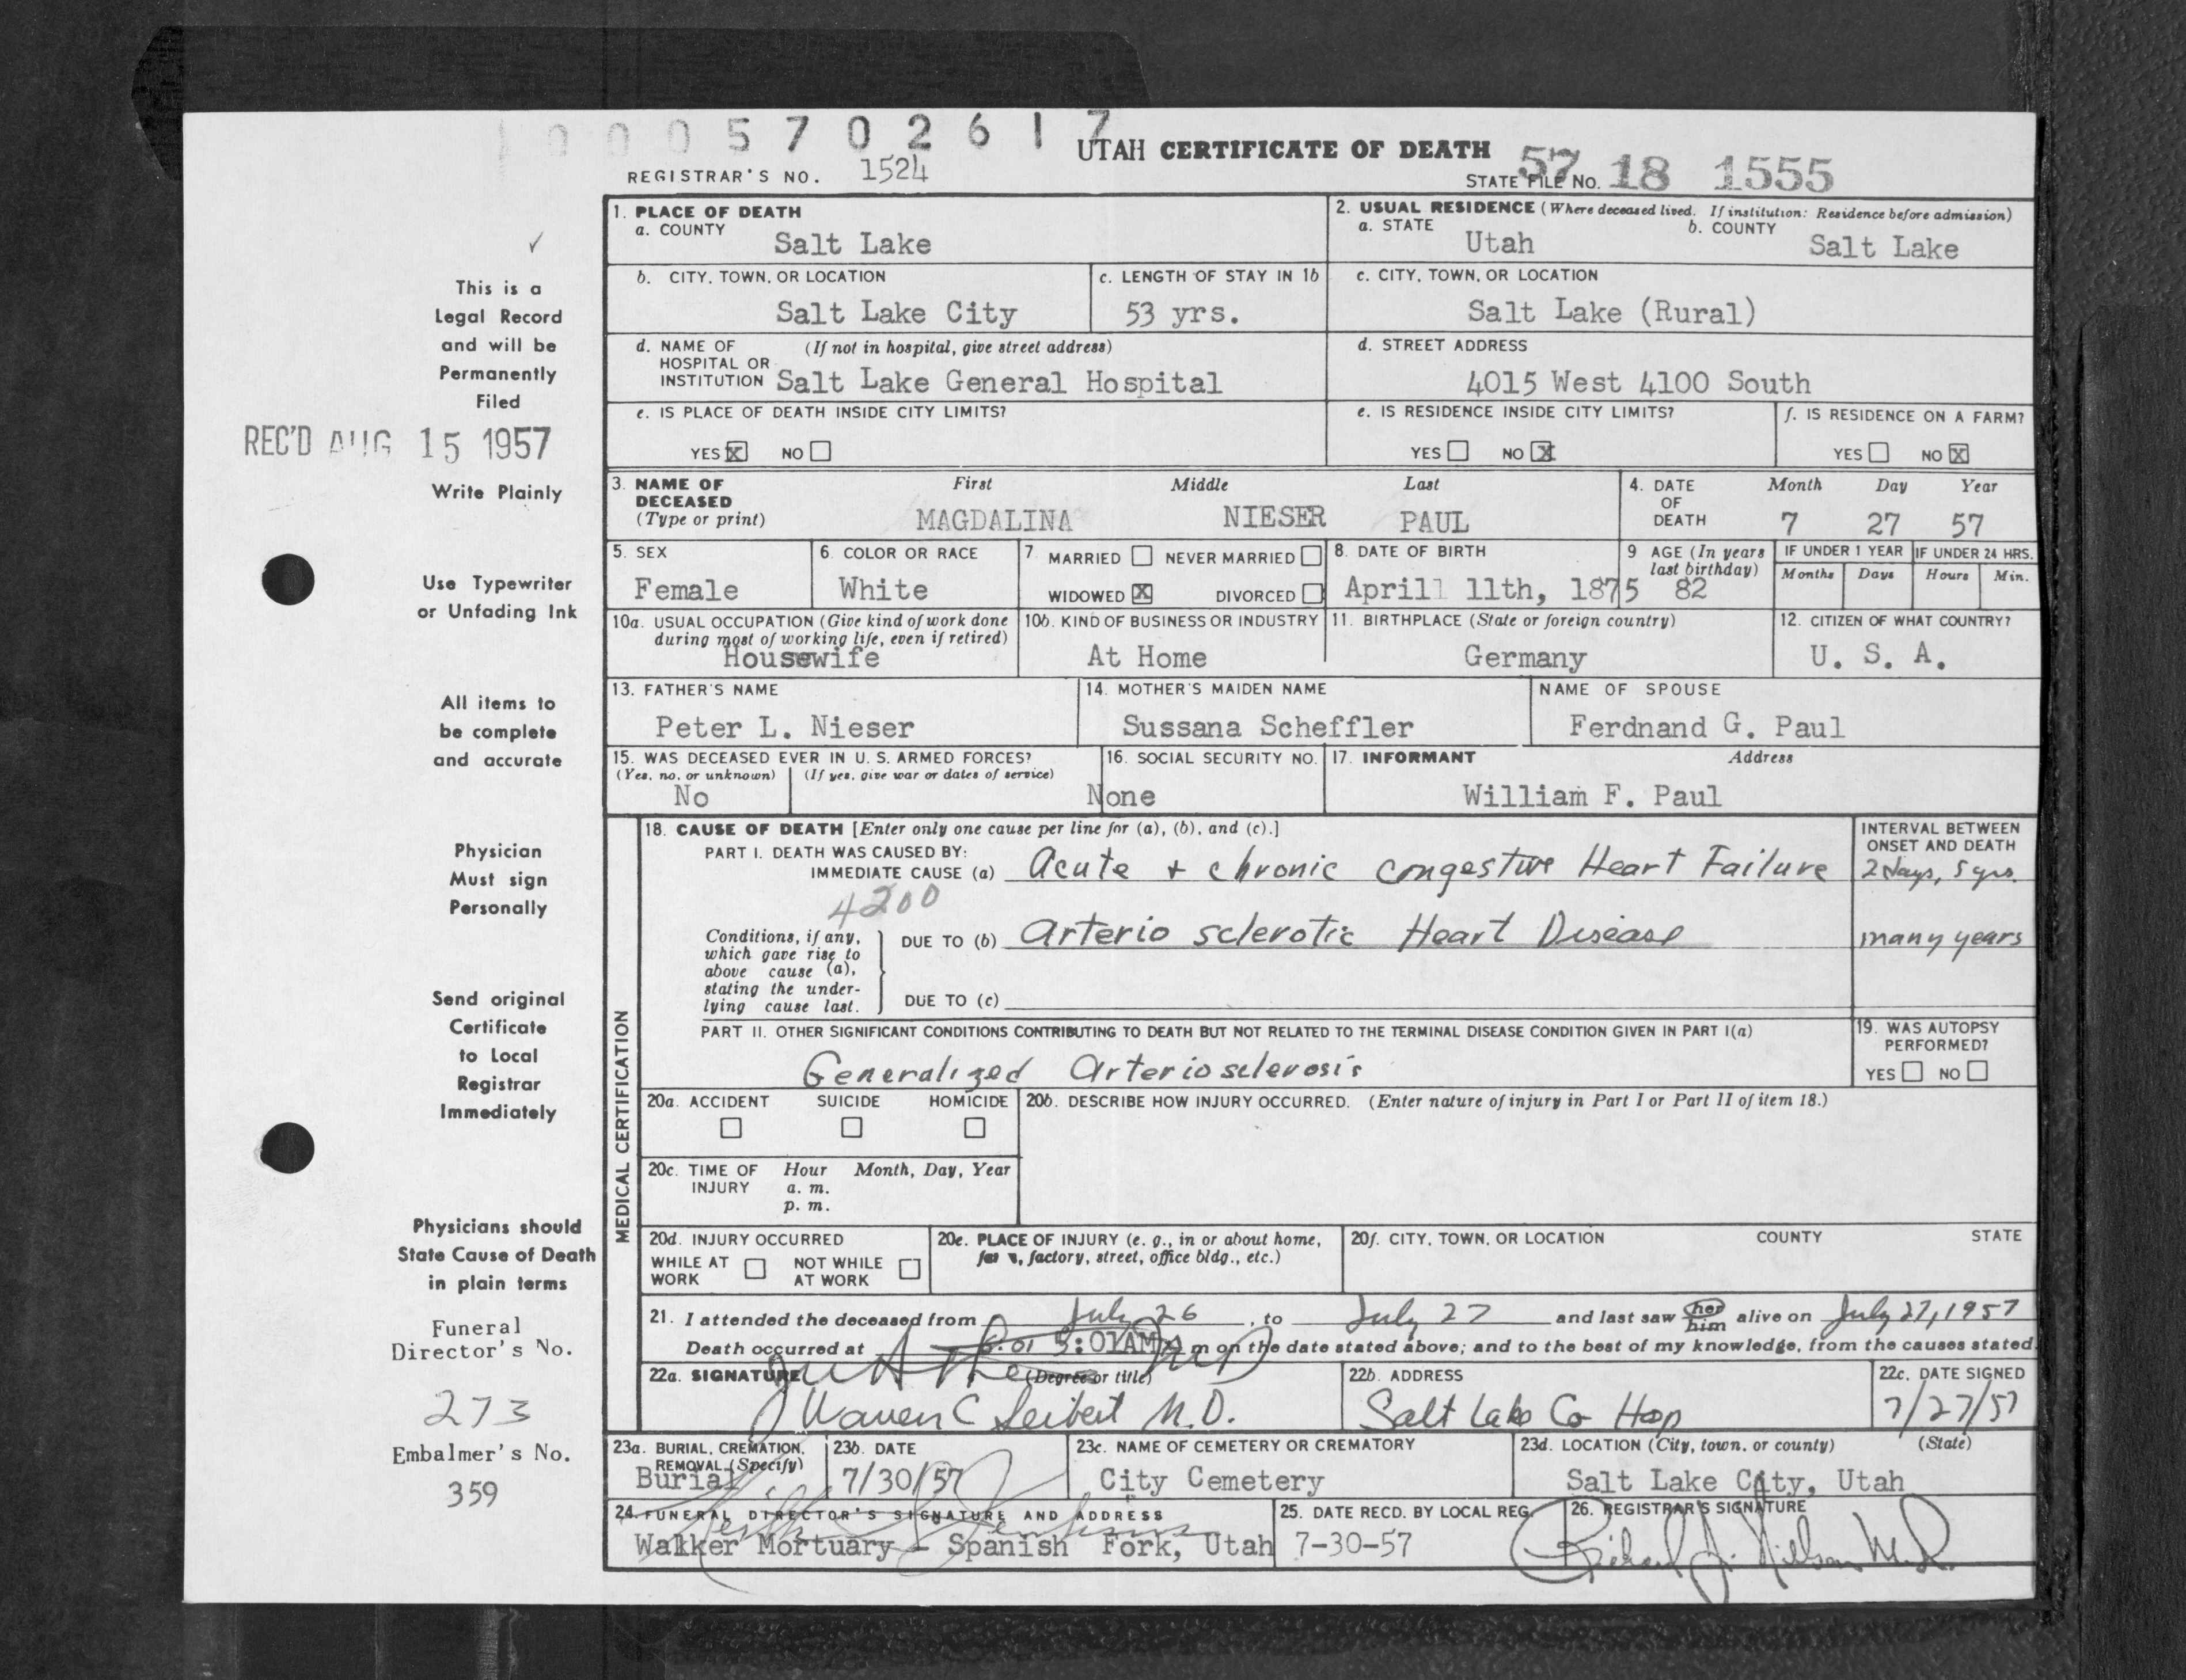 0005702617
UTAH CERTIFICATE OF DEATH
REGISTRAR'S NO. 1524
STATE FILE No. 57 18 1555
1. PLACE OF DEATH
a. COUNTY Salt Lake
2. USUAL RESIDENCE (Where deceased lived. If institution: Residence before admission)
a. STATE Utah b. COUNTY Salt Lake
b. CITY, TOWN, OR LOCATION Salt Lake City
c. LENGTH OF STAY IN 1b 53 yrs.
c. CITY, TOWN, OR LOCATION Salt Lake (Rural)
d. NAME OF HOSPITAL OR INSTITUTION (If not in hospital, give street address) Salt Lake General Hospital
d. STREET ADDRESS 4015 West 4100 South
e. IS PLACE OF DEATH INSIDE CITY LIMITS?
YES X NO
e. IS RESIDENCE INSIDE CITY LIMITS?
YES NO X
f. IS RESIDENCE ON A FARM?
YES NO X
3. NAME OF DECEASED (Type or print)
First Middle Last
MAGDALINA NIESER PAUL
4. DATE OF DEATH
Month Day Year
7 27 57
5. SEX Female
6. COLOR OR RACE White
7. MARRIED NEVER MARRIED
WIDOWED X DIVORCED
8. DATE OF BIRTH April 11th, 1875
9 AGE (In years last birthday) 82
IF UNDER 1 YEAR Months Days
IF UNDER 24 HRS. Hours Min.
10a. USUAL OCCUPATION (Give kind of work done during most of working life, even if retired) Housewife
10b. KIND OF BUSINESS OR INDUSTRY At Home
11. BIRTHPLACE (State or foreign country) Germany
12. CITIZEN OF WHAT COUNTRY? U. S. A.
13. FATHER'S NAME Peter L. Nieser
14. MOTHER'S MAIDEN NAME Sussana Scheffler
NAME OF SPOUSE Ferdnand G. Paul
15. WAS DECEASED EVER IN U. S. ARMED FORCES?
(Yes, no, or unknown) (If yes, give war or dates of service)
No
16. SOCIAL SECURITY NO. None
17. INFORMANT Address
William F. Paul
MEDICAL CERTIFICATION
18. CAUSE OF DEATH [Enter only one cause per line for (a), (b), and (c).]
PART I. DEATH WAS CAUSED BY:
IMMEDIATE CAUSE (a) Acute + chronic congestive Heart Failure
INTERVAL BETWEEN ONSET AND DEATH
2 days, 5 yrs.
4200
Conditions, if any, which gave rise to above cause (a), stating the underlying cause last.
DUE TO (b) Arterio sclerotic Heart Disease
many years
DUE TO (c)
PART II. OTHER SIGNIFICANT CONDITIONS CONTRIBUTING TO DEATH BUT NOT RELATED TO THE TERMINAL DISEASE CONDITION GIVEN IN PART I(a)
Generalized Arteriosclerosis
19. WAS AUTOPSY PERFORMED?
YES NO
20a. ACCIDENT SUICIDE HOMICIDE
20b. DESCRIBE HOW INJURY OCCURRED. (Enter nature of injury in Part I or Part II of item 18.)
20c. TIME OF INJURY Hour Month, Day, Year
a. m.
p. m.
20d. INJURY OCCURRED
WHILE AT WORK NOT WHILE AT WORK
20e. PLACE OF INJURY (e. g., in or about home, factory, street, office bldg., etc.)
20f. CITY, TOWN, OR LOCATION COUNTY STATE
21. I attended the deceased from July 26, to July 27 and last saw her him alive on July 27, 1957
Death occurred at 5:01AM m on the date stated above; and to the best of my knowledge, from the causes stated.
22a. SIGNATURE (Degree or title)
Warren C Seibert M.D.
22b. ADDRESS Salt Lake Co Hosp
22c. DATE SIGNED 7/27/57
23a. BURIAL, CREMATION, REMOVAL (Specify) Burial
23b. DATE 7/30/57
23c. NAME OF CEMETERY OR CREMATORY City Cemetery
23d. LOCATION (City, town, or county) (State)
Salt Lake City, Utah
24. FUNERAL DIRECTOR'S SIGNATURE AND ADDRESS
Walker Mortuary - Spanish Fork, Utah
25. DATE RECD. BY LOCAL REG. 7-30-57
26. REGISTRAR'S SIGNATURE
Richard J. Nielsen M.D.
This is a
Legal Record
and will be
Permanently
Filed
REC'D AUG 15 1957
Write Plainly
Use Typewriter
or Unfading Ink
All items to
be complete
and accurate
Physician
Must sign
Personally
Send original
Certificate
to Local
Registrar
Immediately
Physicians should
State Cause of Death
in plain terms
Funeral
Director's No.
273
Embalmer's No.
359